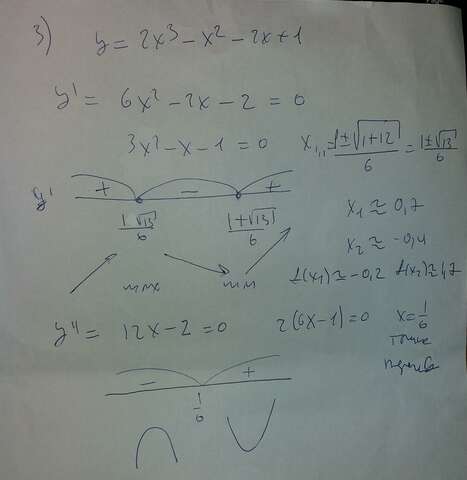 3) y = 2x³ - x² - 2x + 1
y' = 6x² - 2x - 2 = 0
3x² - x - 1 = 0 x₁,₂ = 1±√1+12 / 6 = 1±√13 / 6
y' + - +
1-√13 / 6 1+√13 / 6
x₁ ≈ 0,7
x₂ ≈ -0,4
max min f(x₁) ≈ -0,2 f(x₂) ≈ 1,7
y'' = 12x - 2 = 0 2(6x-1) = 0 x = 1/6
точка
перегиба
- +
1/6